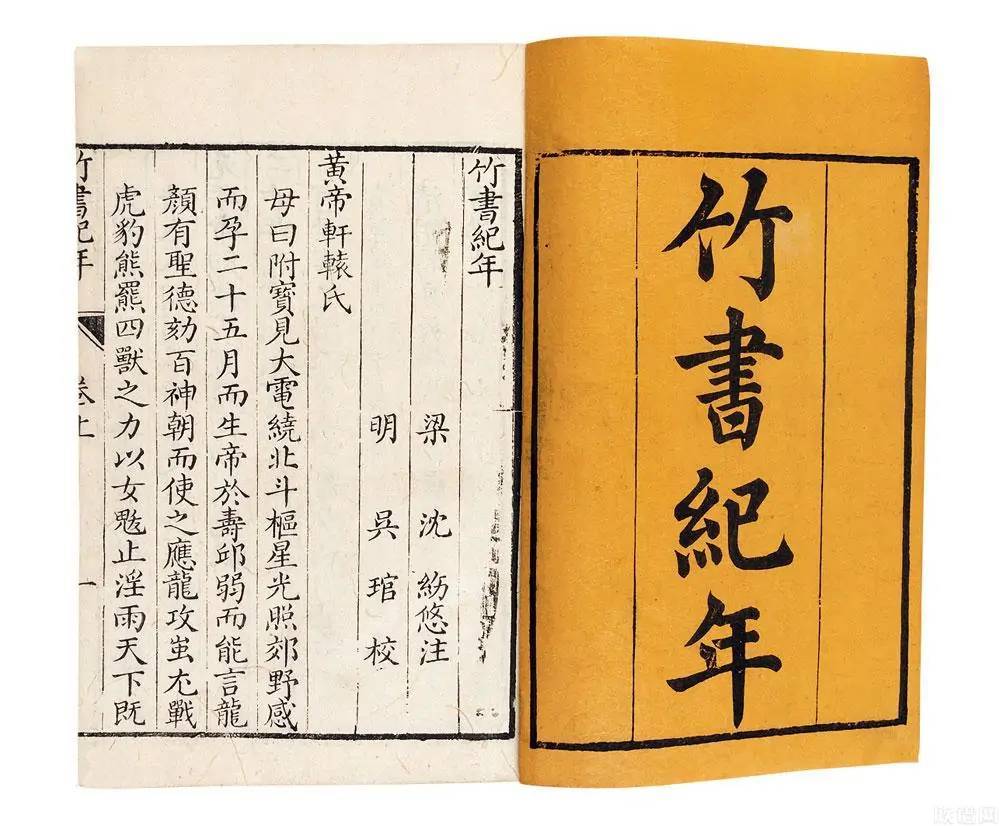 竹書紀年
竹書紀年
梁 沈 紛悠注
明 吳 琯 校
黄帝軒轅氏
母曰附寶見大電繞北斗樞星光照郊野感
而孕二十五月而生帝於壽邱弱而能言龍
顏有聖德劾百神朝而使之應龍攻蚩尤戰
虎豹熊羆四獸之力以女魃止淫雨天下既
竹書紀年 卷上 一